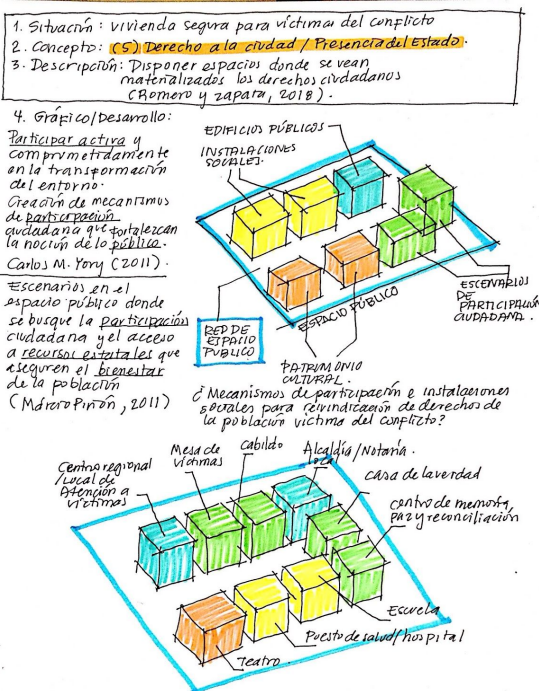 1. Situación: vivienda segura para víctimas del conflicto
2. Concepto: (5) Derecho a la ciudad / Presencia del Estado.
3. Descripción: Disponer espacios donde se vean
materializados los derechos ciudadanos
(Romero y zapata, 2018).
4. Gráfico/Desarrollo:
Participar activa y
comprometidamente
en la transformación
del entorno.
Creación de mecanismos
de participación
ciudadana que fortalezcan
la noción de lo público.
Carlos M. Yory (2011).
Escenarios en el
espacio público donde
se busque la participación
ciudadana y el acceso
a recursos estatales que
aseguren el bienestar
de la población
(Márcio Piñón, 2011)
EDIFICIOS PÚBLICOS
INSTALACIONES
SOCIALES.
ESCENARIOS
DE
PARTICIPACIÓN
CIUDADANA.
ESPACIO PÚBLICO
RED DE
ESPACIO
PUBLICO
PATRIMONIO
CULTURAL.
¿Mecanismos de participación e instalaciones
sociales para reivindicación de derechos de
la población victima del conflicto?
Centro regional
/Local de
Atención a
víctimas
Mesa de
víctimas
Cabildo
Alcaldía/Notaría.
Local
casa de la verdad
centro de memoria,
paz y reconciliación
Escuela
Puesto de salud/hospital
Teatro.